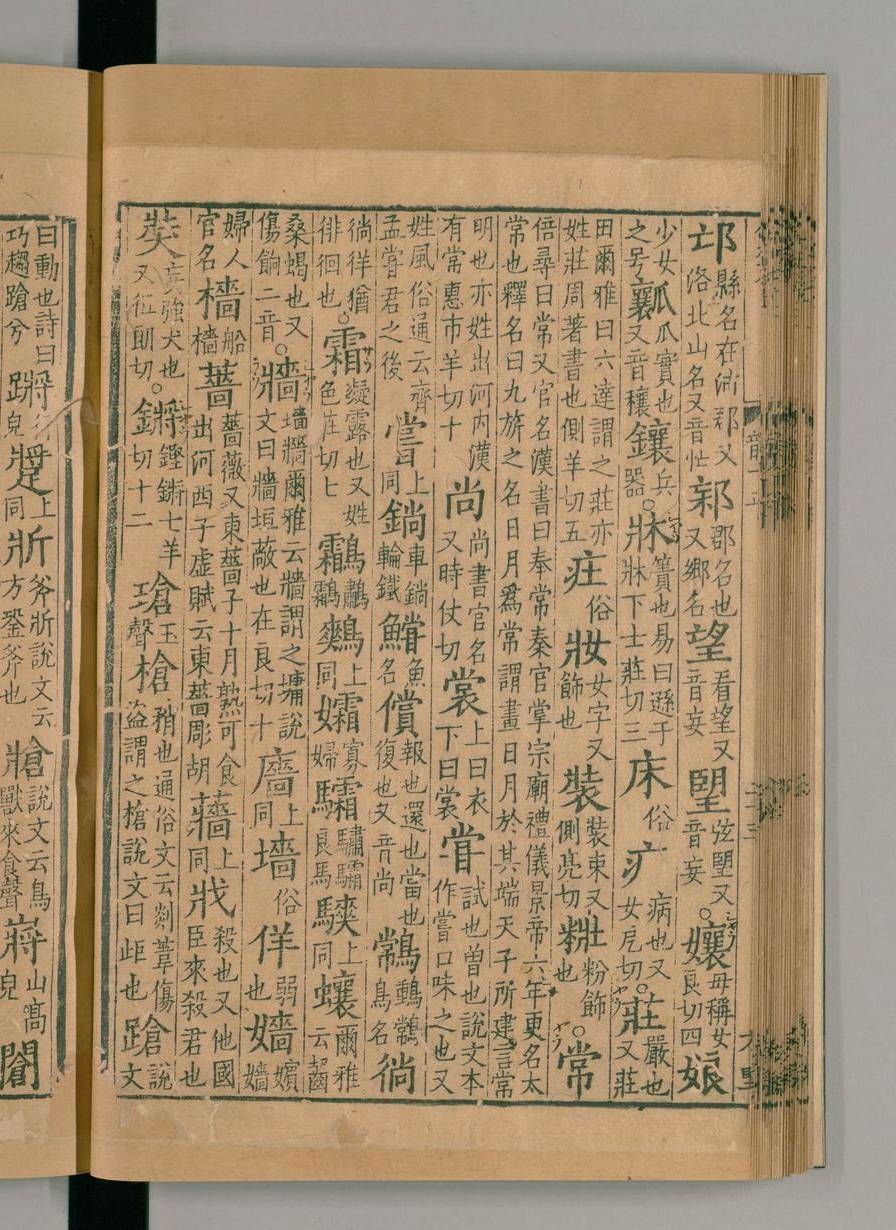 邙縣名在沛郡又洛北山名又音忙𨛭郡名也又鄉名望看望又音妄朢弦朢又音妄○孃母稱女良切四娘
少女之号瓤瓜實也又音穰鑲兵器○牀簀也易曰遜于牀牀下士莊切三床俗疒病也又女戹切○莊嚴也又莊
田爾雅曰六達謂之莊亦姓莊周著書也側羊切五庄俗妝女字又飾也裝裝束又側亮切粧粉飾也○常
倍尋曰常又官名漢書曰奉常秦官掌宗廟禮儀景帝六年更名太常也釋名曰九旂之名日月爲常謂畫日月於其端天子所建言常
明也亦姓出河内漢有常惠市羊切十尚尚書官名又時仗切裳上曰衣下曰裳甞試也曾也說文本作嘗口味之也又
姓風俗通云齊孟嘗君之後嘗上同鋿車鋿輪鐵鱨魚名償報也還也當也復也又音尚鳥名徜
徜徉猶徘徊也○霜凝露也又姓色庄切七鸘鷫鸘鷞上同孀寡婦驦驌驦良馬騻上同蠰爾雅云齧
桑蝎也又傷餉二音○牆墻牆爾雅云牆謂之墉說文曰牆垣蔽也在良切十廧上同墻俗佯弱也嬙嬪嬙
婦人官名檣船檣薔薔薇又東薔子十月熟可食出河西子虛賦云東薔彫胡蘠上同戕殺也又他國臣來殺君也
奘妄強犬也又徂朗切○鏘鏗鏘七羊切十二瑲玉聲槍矟也通俗文云剡葦傷盜謂之槍說文曰歫也蹌說文
曰動也詩曰巧趨蹌兮蹡行皃上同斨斧斨說文云方銎斧也牄說文云鳥獸來食聲嶈山高皃閶